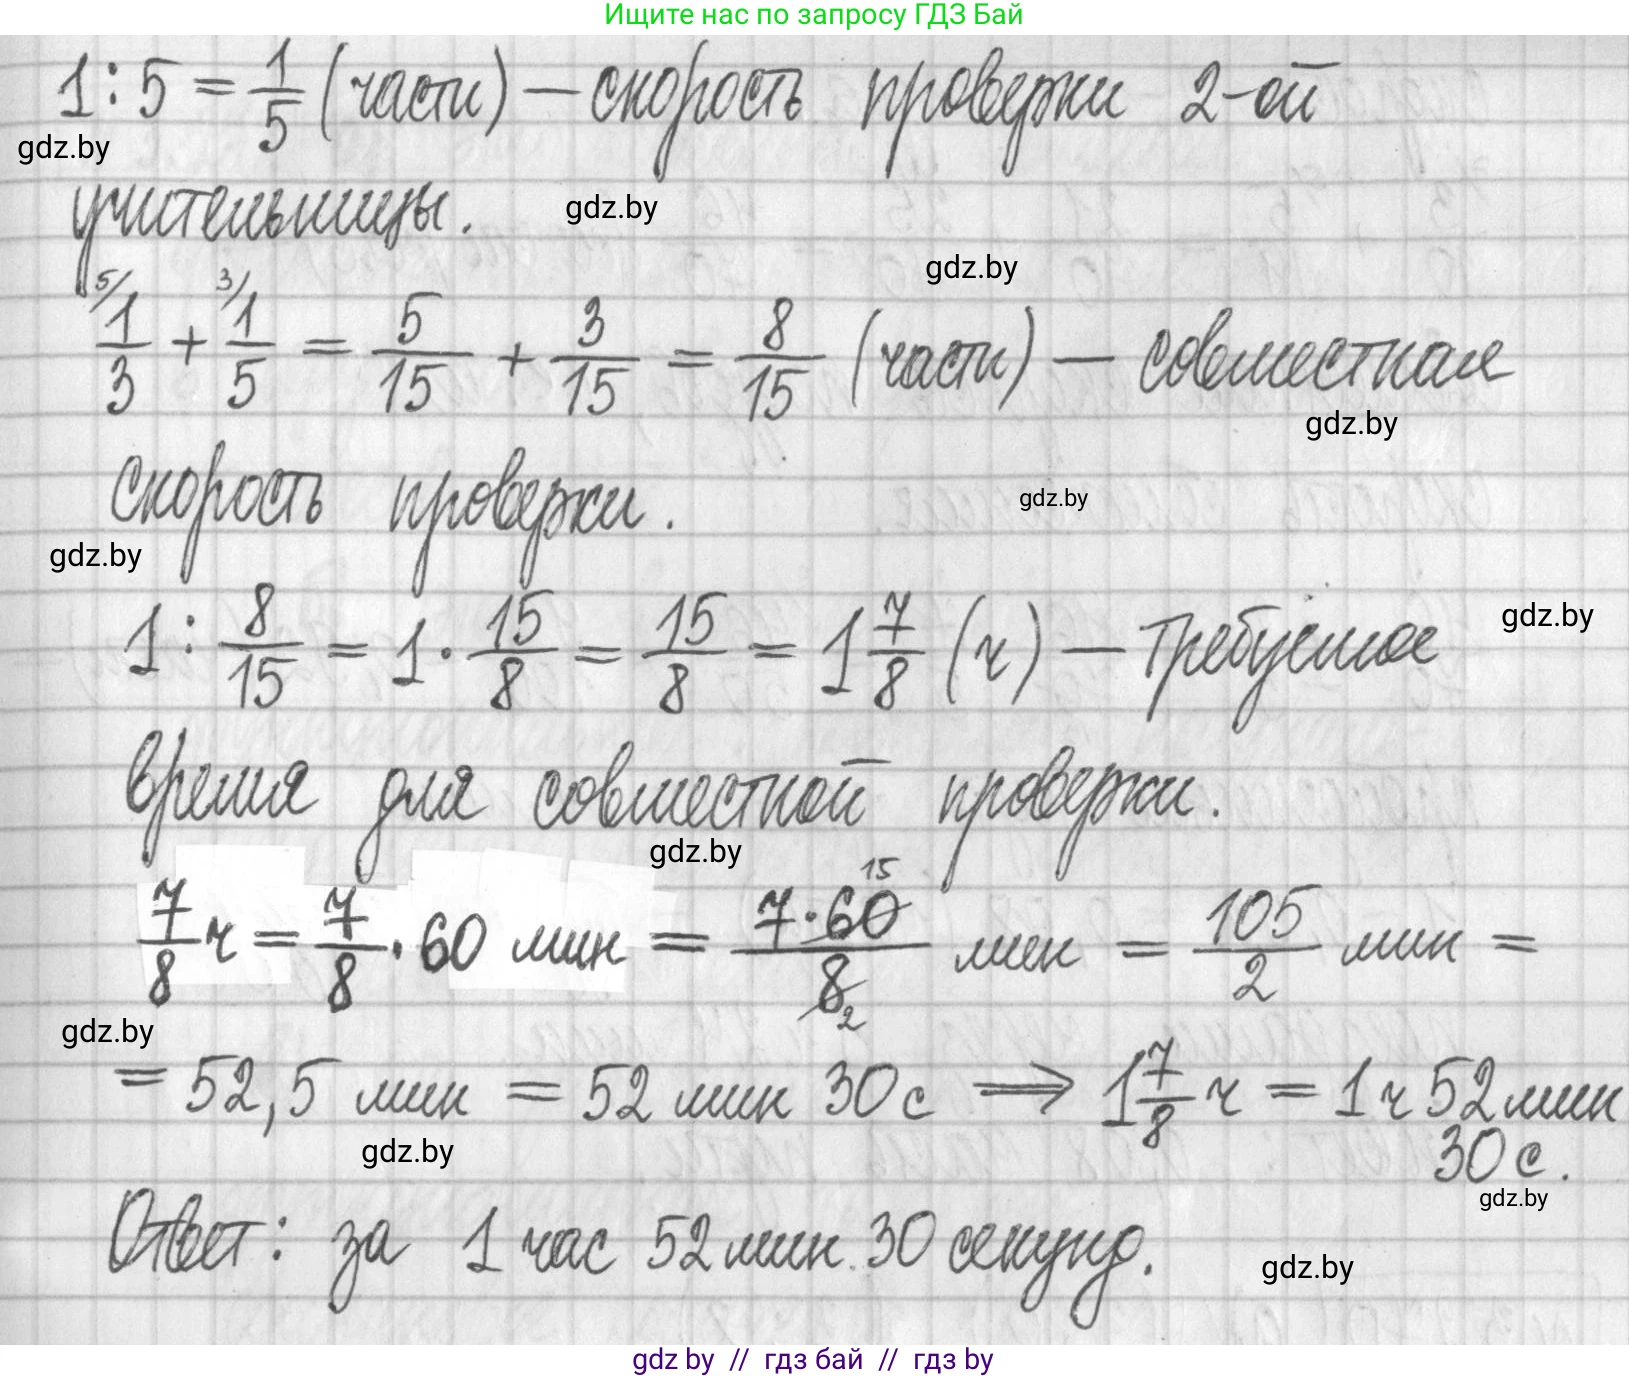 Ищите нас по запросу ГДЗ Бай
1 : 5 = 1/5 (части) — скорость проверки 2-ой
gdz.by
учительницы.
gdz.by
gdz.by
5/ 1/3 + 3/ 1/5 = 5/15 + 3/15 = 8/15 (части) — совместная
gdz.by
скорость проверки.
gdz.by
gdz.by
1 : 8/15 = 1 · 15/8 = 15/8 = 1 7/8 (ч) — требуемое
gdz.by
время для совместной проверки.
gdz.by
7/8 ч = 7/8 · 60 мин = 7 · 60 15 / 8 2 мин = 105/2 мин =
gdz.by
= 52,5 мин = 52 мин 30 с ⟹ 1 7/8 ч = 1 ч 52 мин
30 с.
gdz.by
gdz.by
Ответ: за 1 час 52 мин 30 секунд.
gdz.by
gdz by // гдз бай // гдз by